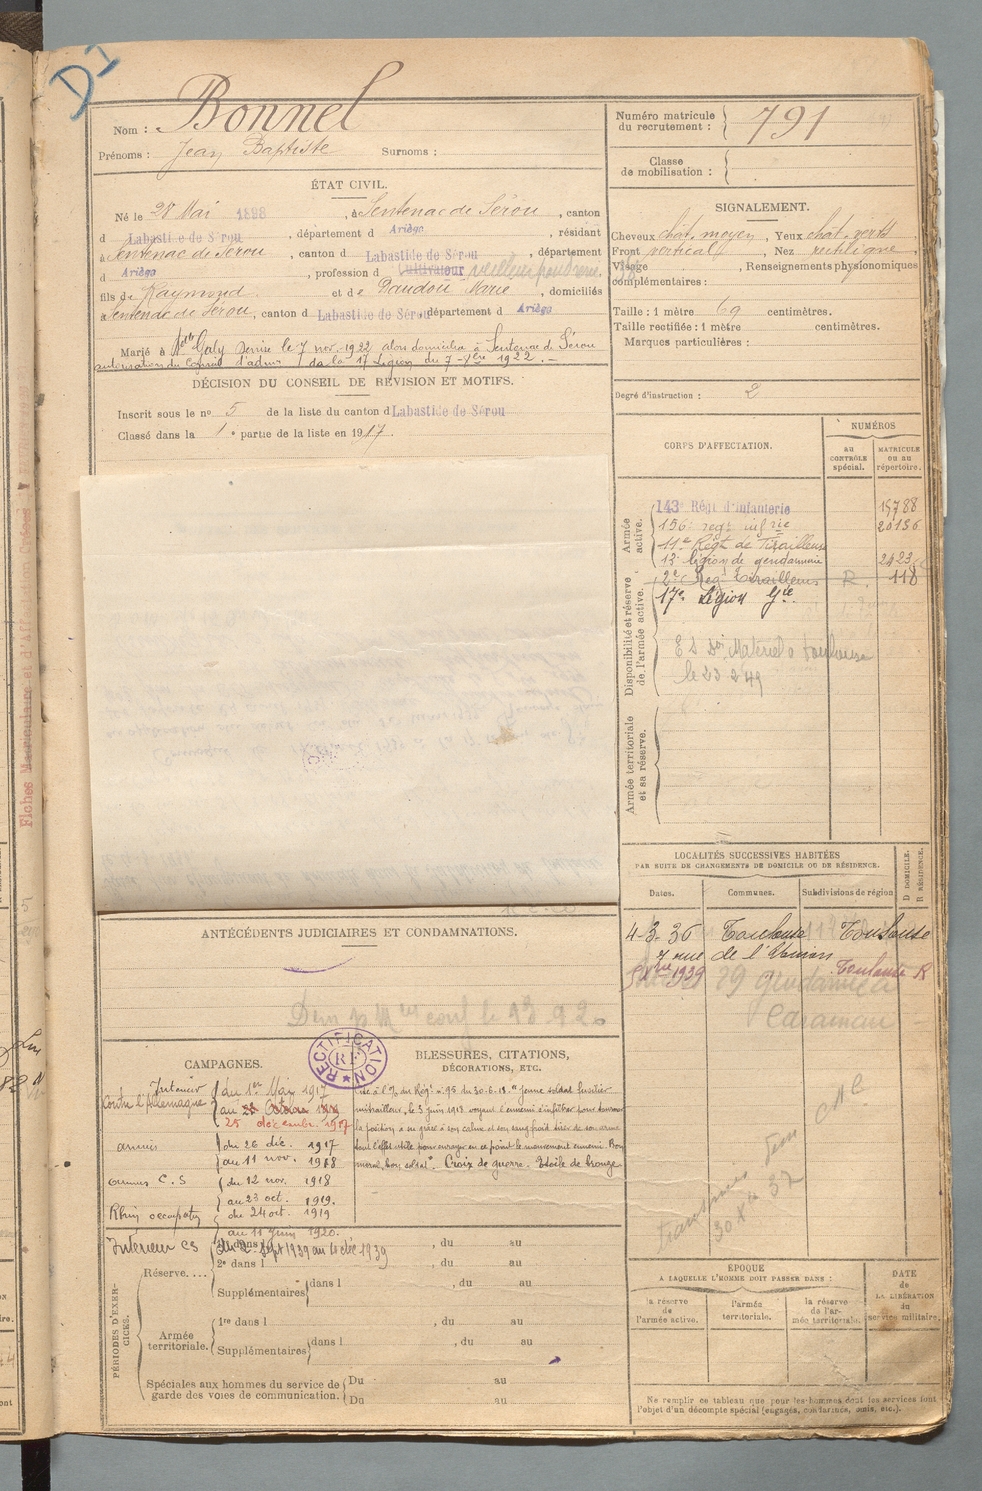 D1
Bonnel
Nom :
Prénoms : Jean Baptiste Surnoms :
Numéro matricule du recrutement : 791
Classe de mobilisation :
ÉTAT CIVIL.
Né le 28 Mai 1898, à Sentenac de Sérou, canton
d Labastide de Sérou, département d Ariège, résidant
à Sentenac de Sérou, canton d Labastide de Sérou, département
d Ariège, profession d cultivateur
fils de Raymond et de Dandou Marie, domiciliés
à Sentenac de Sérou, canton d Labastide de Sérou département d Ariège
Marié à Galy Denise le 7 nov. 1922 alors domicilié à Sentenac de Sérou
autorisation du Conseil d'adm de la 17 Légion du 7 1922. -
DÉCISION DU CONSEIL DE RÉVISION ET MOTIFS.
Inscrit sous le n° 5 de la liste du canton d Labastide de Sérou
Classé dans la 1e partie de la liste en 1917.
SIGNALEMENT.
Cheveux chat. moyen, Yeux chat. verts
Front vertical, Nez rectiligne
Visage , Renseignements physionomiques
complémentaires :
Taille : 1 mètre 69 centimètres.
Taille rectifiée : 1 mètre centimètres.
Marques particulières :
Degré d'instruction : 2
CORPS D'AFFECTATION.
NUMÉROS
au CONTRÔLE spécial.
MATRICULE ou au répertoire.
Armée active.
143e Régt d'Infanterie 15788
156e regt infrie 20136
11e Régt de Tirailleurs
13e légion de gendarmerie 2423
Disponibilité et réserve de l'armée active.
2e Reg Tirailleurs R. 118
17e Légion Gie
Matériel Toulouse
le 23 2 49
Armée territoriale et sa réserve.
LOCALITÉS SUCCESSIVES HABITÉES
PAR SUITE DE CHANGEMENTS DE DOMICILE OU DE RÉSIDENCE.
Dates. Communes. Subdivisions de région
D DOMICILE. R RÉSIDENCE.
4-3-36 Toulouse Toulouse
7 rue de l'Union
1939 Toulouse R
29 gendarmerie
Caraman
30 X 37
ANTÉCÉDENTS JUDICIAIRES ET CONDAMNATIONS.
CAMPAGNES.
Intérieur du 1er Mai 1917
Contre l'Allemagne au 28 Octobre
25 décembre 1917
armées du 26 déc. 1917
au 11 nov. 1918
armées C.S du 12 nov. 1918
au 23 oct. 1919.
Rhin occupation du 24 oct. 1919
au 11 Juin 1920.
Intérieur CS du 2 Sept 1939 au 4 déc 1939
RECTIFICATION
RF
BLESSURES, CITATIONS, DÉCORATIONS, ETC.
Cité à l'O. du Régt n° 95 du 30.6.18. "Jeune soldat fusilier
mitrailleur, le 5 juin 1918 voyant l'ennemi s'infiltrer pour tourner
la position a su grâce à son calme et son sang froid tirer de son arme
tout l'effet utile pour enrayer en ce point le mouvement ennemi. Bon
moral, bon soldat". Croix de guerre. Etoile de bronze
PÉRIODES D'EXERCICES.
Réserve....
1re dans l , du au
2e dans l , du au
Supplémentaires dans l , du au
Armée territoriale.
1re dans l , du au
Supplémentaires dans l , du au
Spéciales aux hommes du service de garde des voies de communication.
Du au
Du au
ÉPOQUE
A LAQUELLE L'HOMME DOIT PASSER DANS :
la réserve de l'armée active.
l'armée territoriale.
la réserve de l'armée territoriale.
DATE de LA LIBÉRATION du service militaire.
Ne remplir ce tableau que pour les hommes dont les services font
l'objet d'un décompte spécial (engagés, condamnés, omis, etc.).
Fiches Matriculaire et d'Aff. Créées